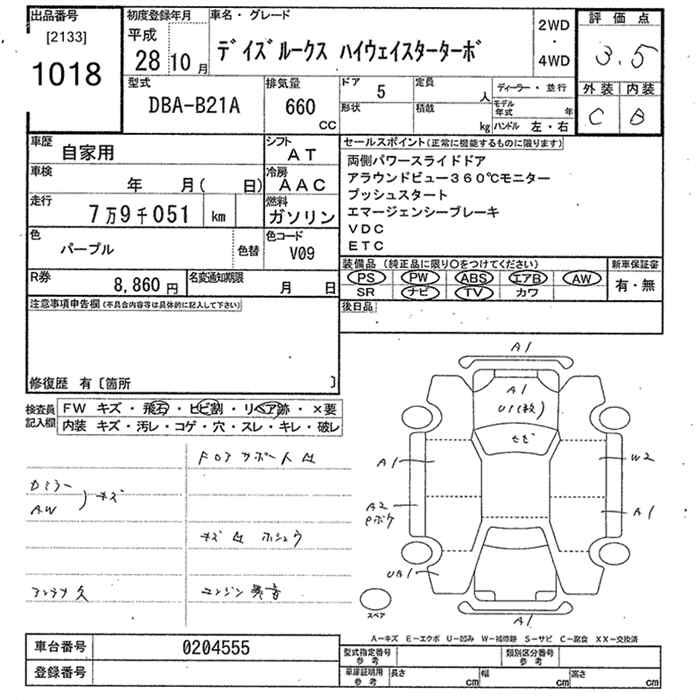 出品番号
[2133]
1018
初度登録年月
平成
28 10 月
車名・グレード
デイズルークス ハイウェイスターターボ
2WD
・
4WD
評価点
3.5
外装 内装
C B
型式
DBA-B21A
排気量
660
CC
ドア 5
形状
定員 人
積載 kg
ディーラー・並行
モデル年式 年
ハンドル 左・右
車歴
自家用
シフト
AT
車検
年 月( 日)
冷房
AAC
走行
7万9千051 km
燃料
ガソリン
色
パープル
色替
色コード
V09
R券
8,860 円
名変通知期限
月 日
セールスポイント(正常に機能するものに限ります)
両側パワースライドドア
アラウンドビュー360℃モニター
プッシュスタート
エマージェンシーブレーキ
VDC
ETC
装備品(純正品に限り○をつけてください)
PS PW ABS エアB AW
SR ナビ TV カワ
新車保証書
有・無
後日品
注意事項申告欄(不具合内容等は具体的に記入して下さい)
修復歴 有〔箇所 〕
検査員記入欄
FW キズ・飛石・ヒビ割・リペア跡・×要
内装 キズ・汚レ・コゲ・穴・スレ・キレ・破レ
AW
キズ
アンテナ欠
エンジン異音
A1
A1
U1(枚)
ヒビ
A1
W2
A2
A1
A1
スペア
A-キズ E-エクボ U-凹み W-補修跡 S-サビ C-腐食 XX-交換済
車台番号 0204555
登録番号
型式指定番号
参考
類別区分番号
参考
車庫証明用
参考
長さ cm
幅 cm
高さ cm